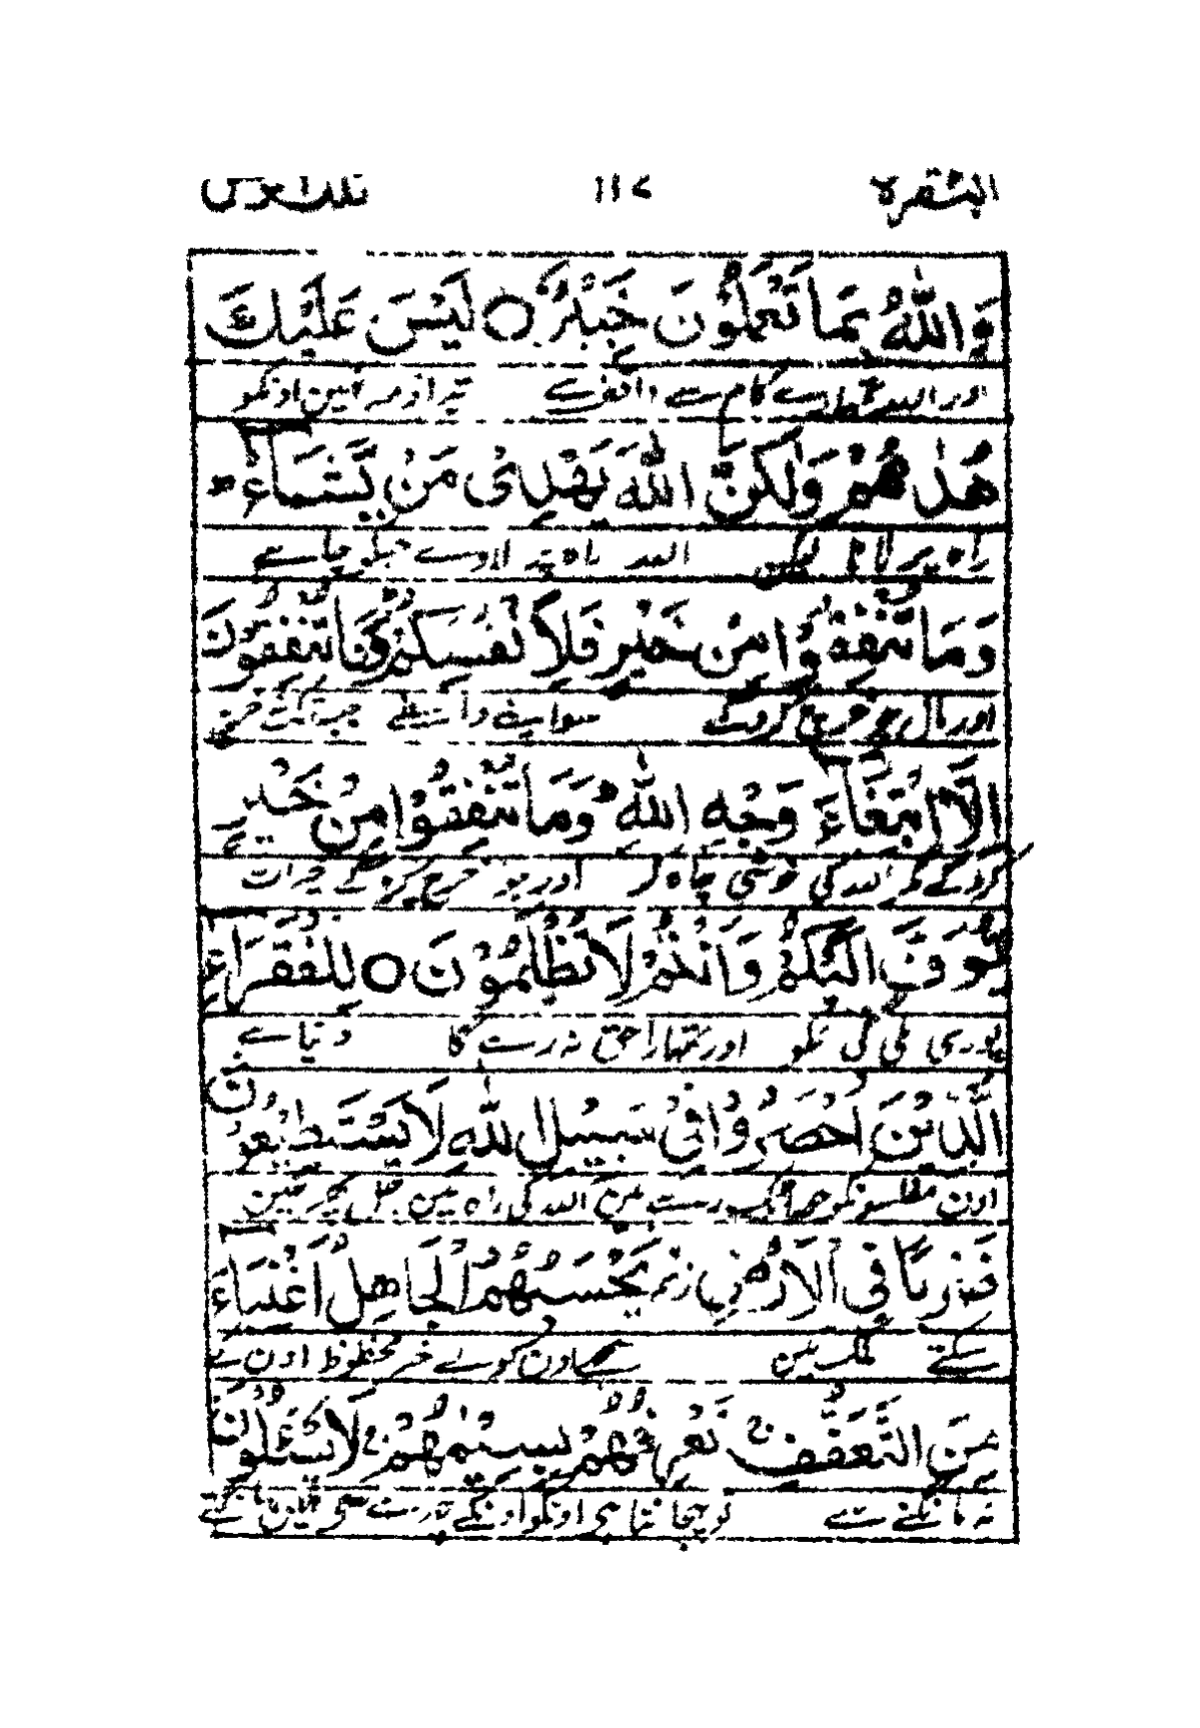 البقرة ۱۱۷ تلك الرسل
وَاللّٰهُ بِمَا تَعْمَلُوْنَ خَبِيْرٌ ○ لَيْسَ عَلَيْكَ
اور اللہ تمہارے کام سے واقف ہے تیرا ذمہ نہین اونکو
هُدٰىهُمْ وَلٰكِنَّ اللّٰهَ يَهْدِيْ مَنْ يَّشَآءُ ؕ
راہ پر لانا لیکن اللہ راہ پہ لاوے جسکو چاہے
وَمَا تُنْفِقُوْا مِنْ خَيْرٍ فَلِاَنْفُسِكُمْ وَمَا تُنْفِقُوْنَ
اور مال جو خرچ کروگے سو اپنے واسطے جب تک نہ خرچ
اِلَّا ابْتِغَآءَ وَجْهِ اللّٰهِ ؕ وَمَا تُنْفِقُوْا مِنْ خَيْرٍ
کروگے مگر اللہ کی خوشی چاہ کر اور جو خرچ کروگے خیرات
يُّوَفَّ اِلَيْكُمْ وَاَنْتُمْ لَا تُظْلَمُوْنَ ○ لِلْفُقَرَآءِ
پوری ملے گی تمکو اور تمہارا حق نہ رہے گا دنیا ہے
الَّذِيْنَ اُحْصِرُوْا فِيْ سَبِيْلِ اللّٰهِ لَا يَسْتَطِيْعُوْنَ
اون مفلسونکو جو اٹک رہے ہین اللہ کی راہ مین چل پھر نہین
ضَرْبًا فِي الْاَرْضِ ز يَحْسَبُهُمُ الْجَاهِلُ اَغْنِيَآءَ
سکتے ملک مین سمجھے اون کو بے خبر محظوظ اون کے
مِنَ التَّعَفُّفِ ۚ تَعْرِفُهُمْ بِسِيْمٰهُمْ ۚ لَا يَسْئَلُوْنَ
نہ مانگنے سے تو پہچانتا ہی اونکو اونکے چہرے سے نہین مانگتے